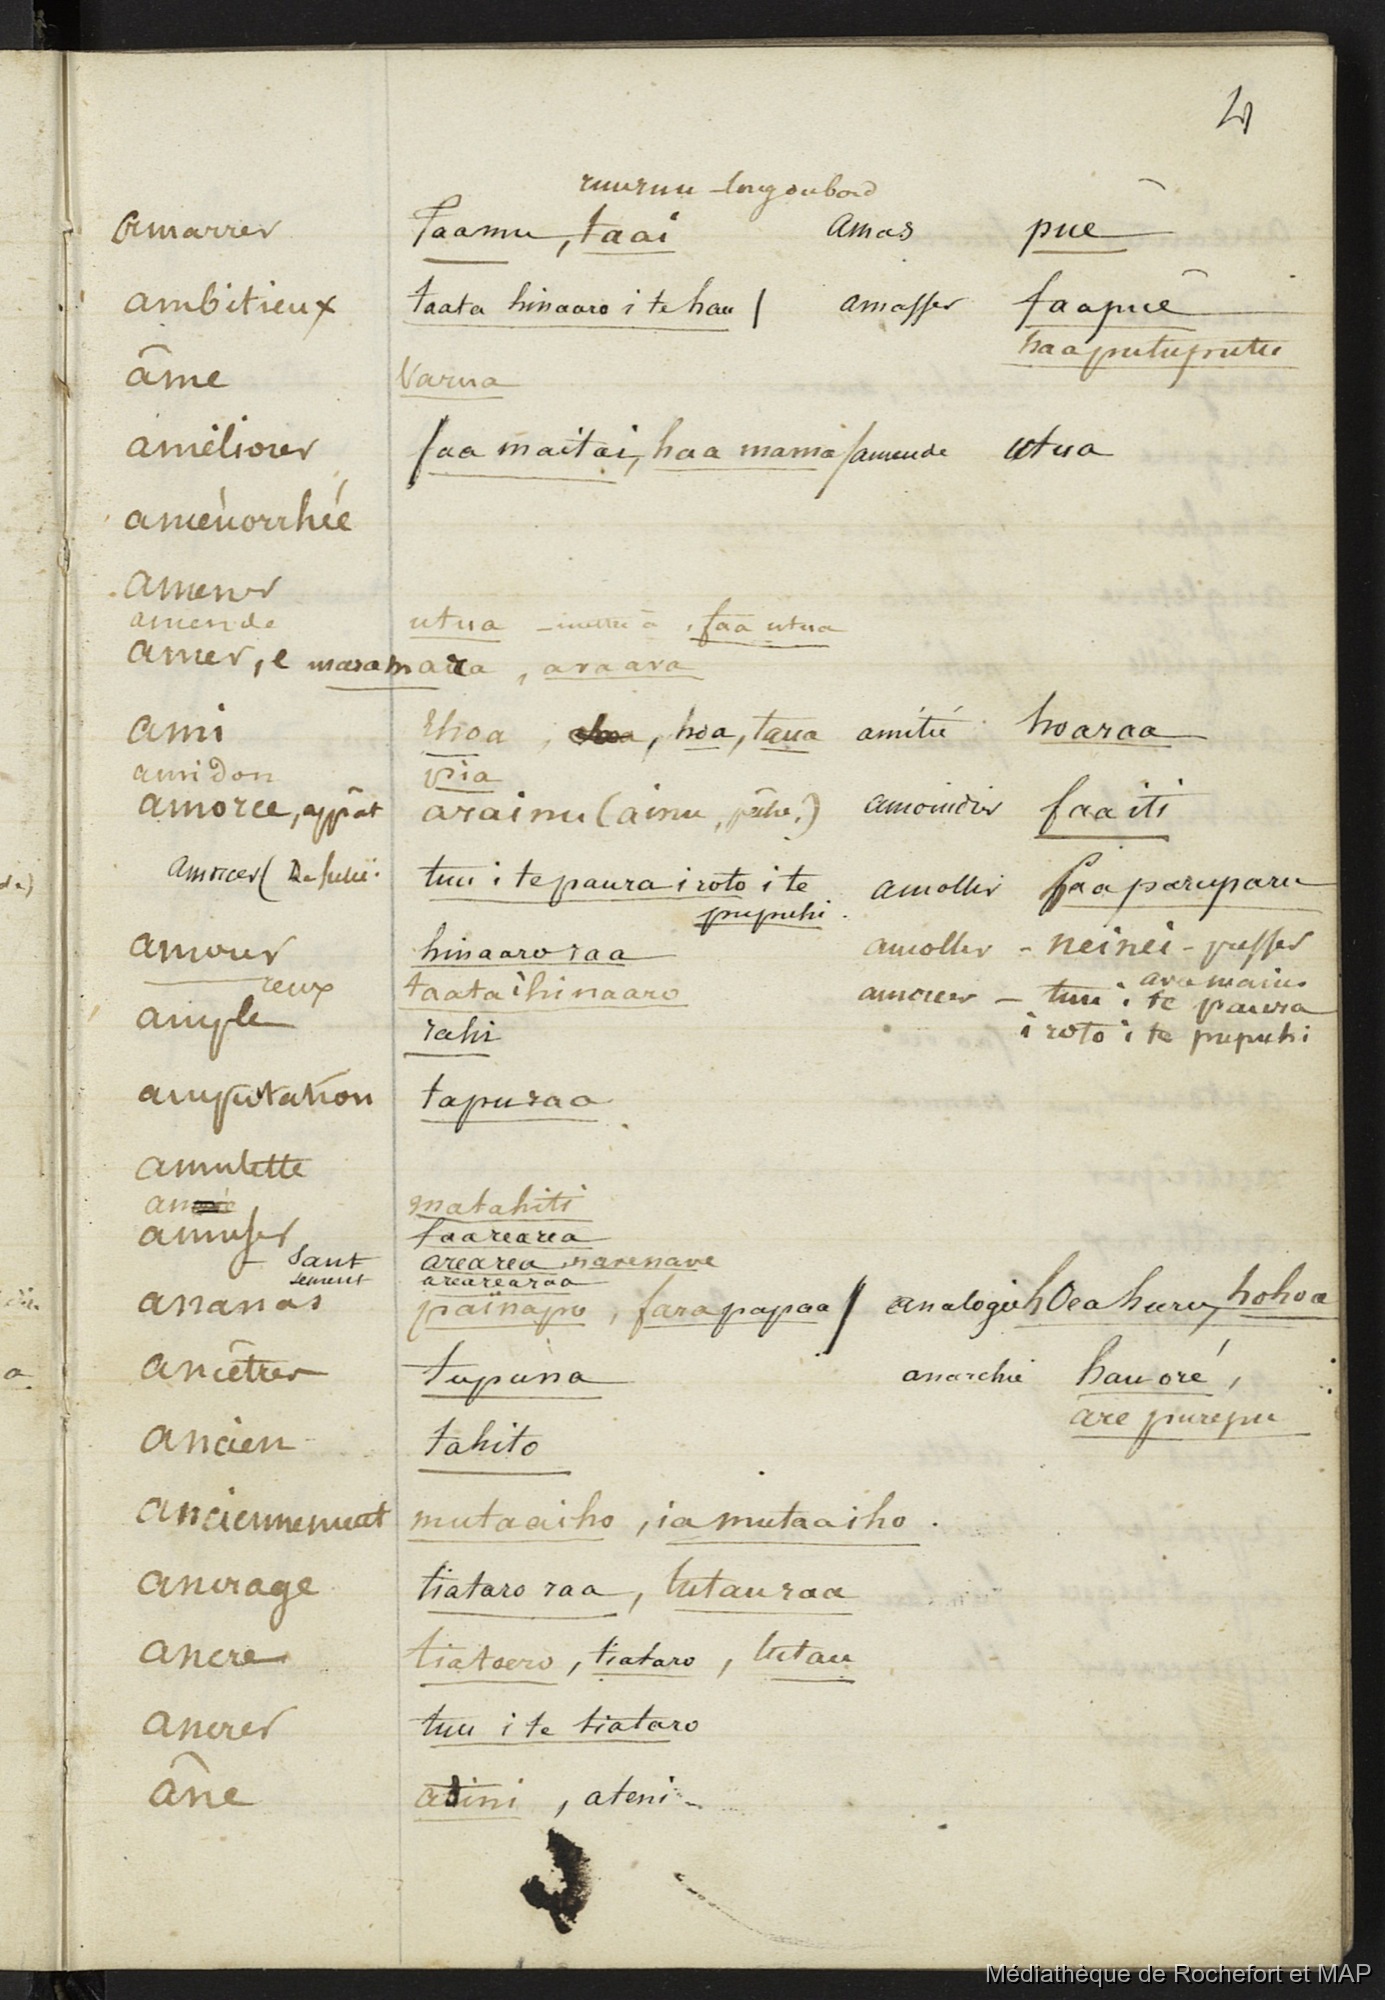 4
ruuruu
amarrer Taamu, taai amas pue
ambitieux taata hinaaro i te hau / amasser faapuê
haaputuputu
âme Varua
améliorer faa maitai, haa mama / amende utua
aménorrhée
amener
amende utua - mettre à, faa utua
amer, e maramara, avaava
ami Ehoa, hoa, taua amitié hoaraa
amidon pia
amorce, appât arainu (ainu, pêche.) amoindrir faaiti
amorcer ( De fusil. tuu i te paura i roto i te amollir faaparuparu
pupuhi.
amour hinaaroraa amollir - neinei - presser
reux taata i hinaaro avec mains
ample rahi amorcer - tuu i te paura
i roto i te pupuhi
amputation tapuraa
amulette
matahiti
amuser faarearea
sant arearea, navenave
sement arearearaa
ananas païnapo, farapapaa / analogie hoeahuru, hohoa
ancêtres tupuna anarchie hau oré,
are purepu
ancien tahito
anciennement mutaaiho, ia mutaaiho.
ancrage tiataro raa, tutauraa
ancre tiataero, tiataro, tutau
ancrer tuu i te tiataro
âne atini, ateni -
Médiathèque de Rochefort et MAP